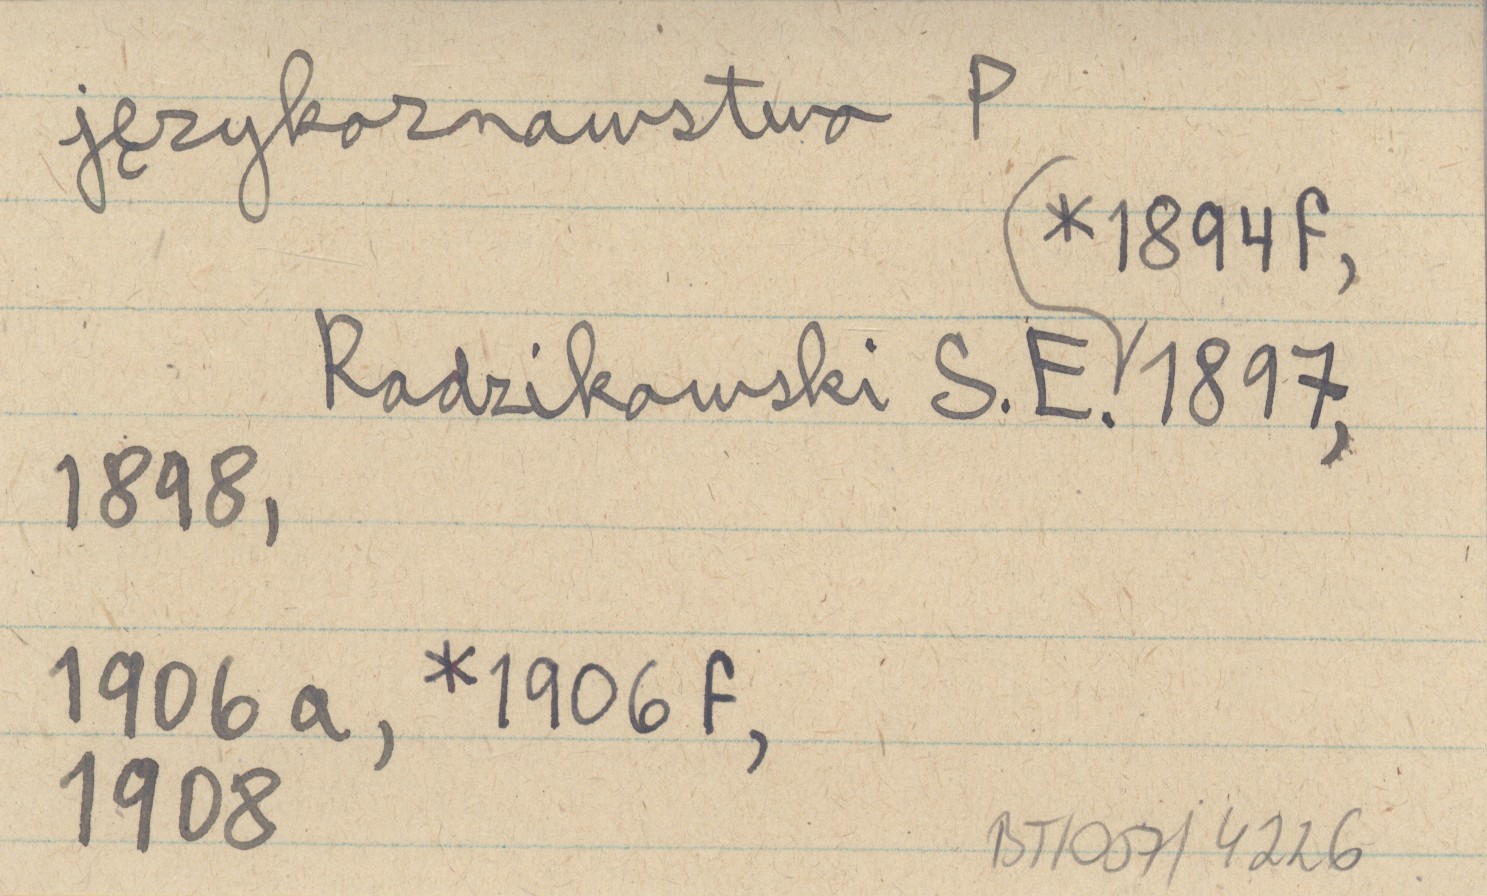 językoznawstwo P
*1894f,
Radzikowski S.E. 1897,
1898,
1906a, *1906f,
1908
BT/057/4226